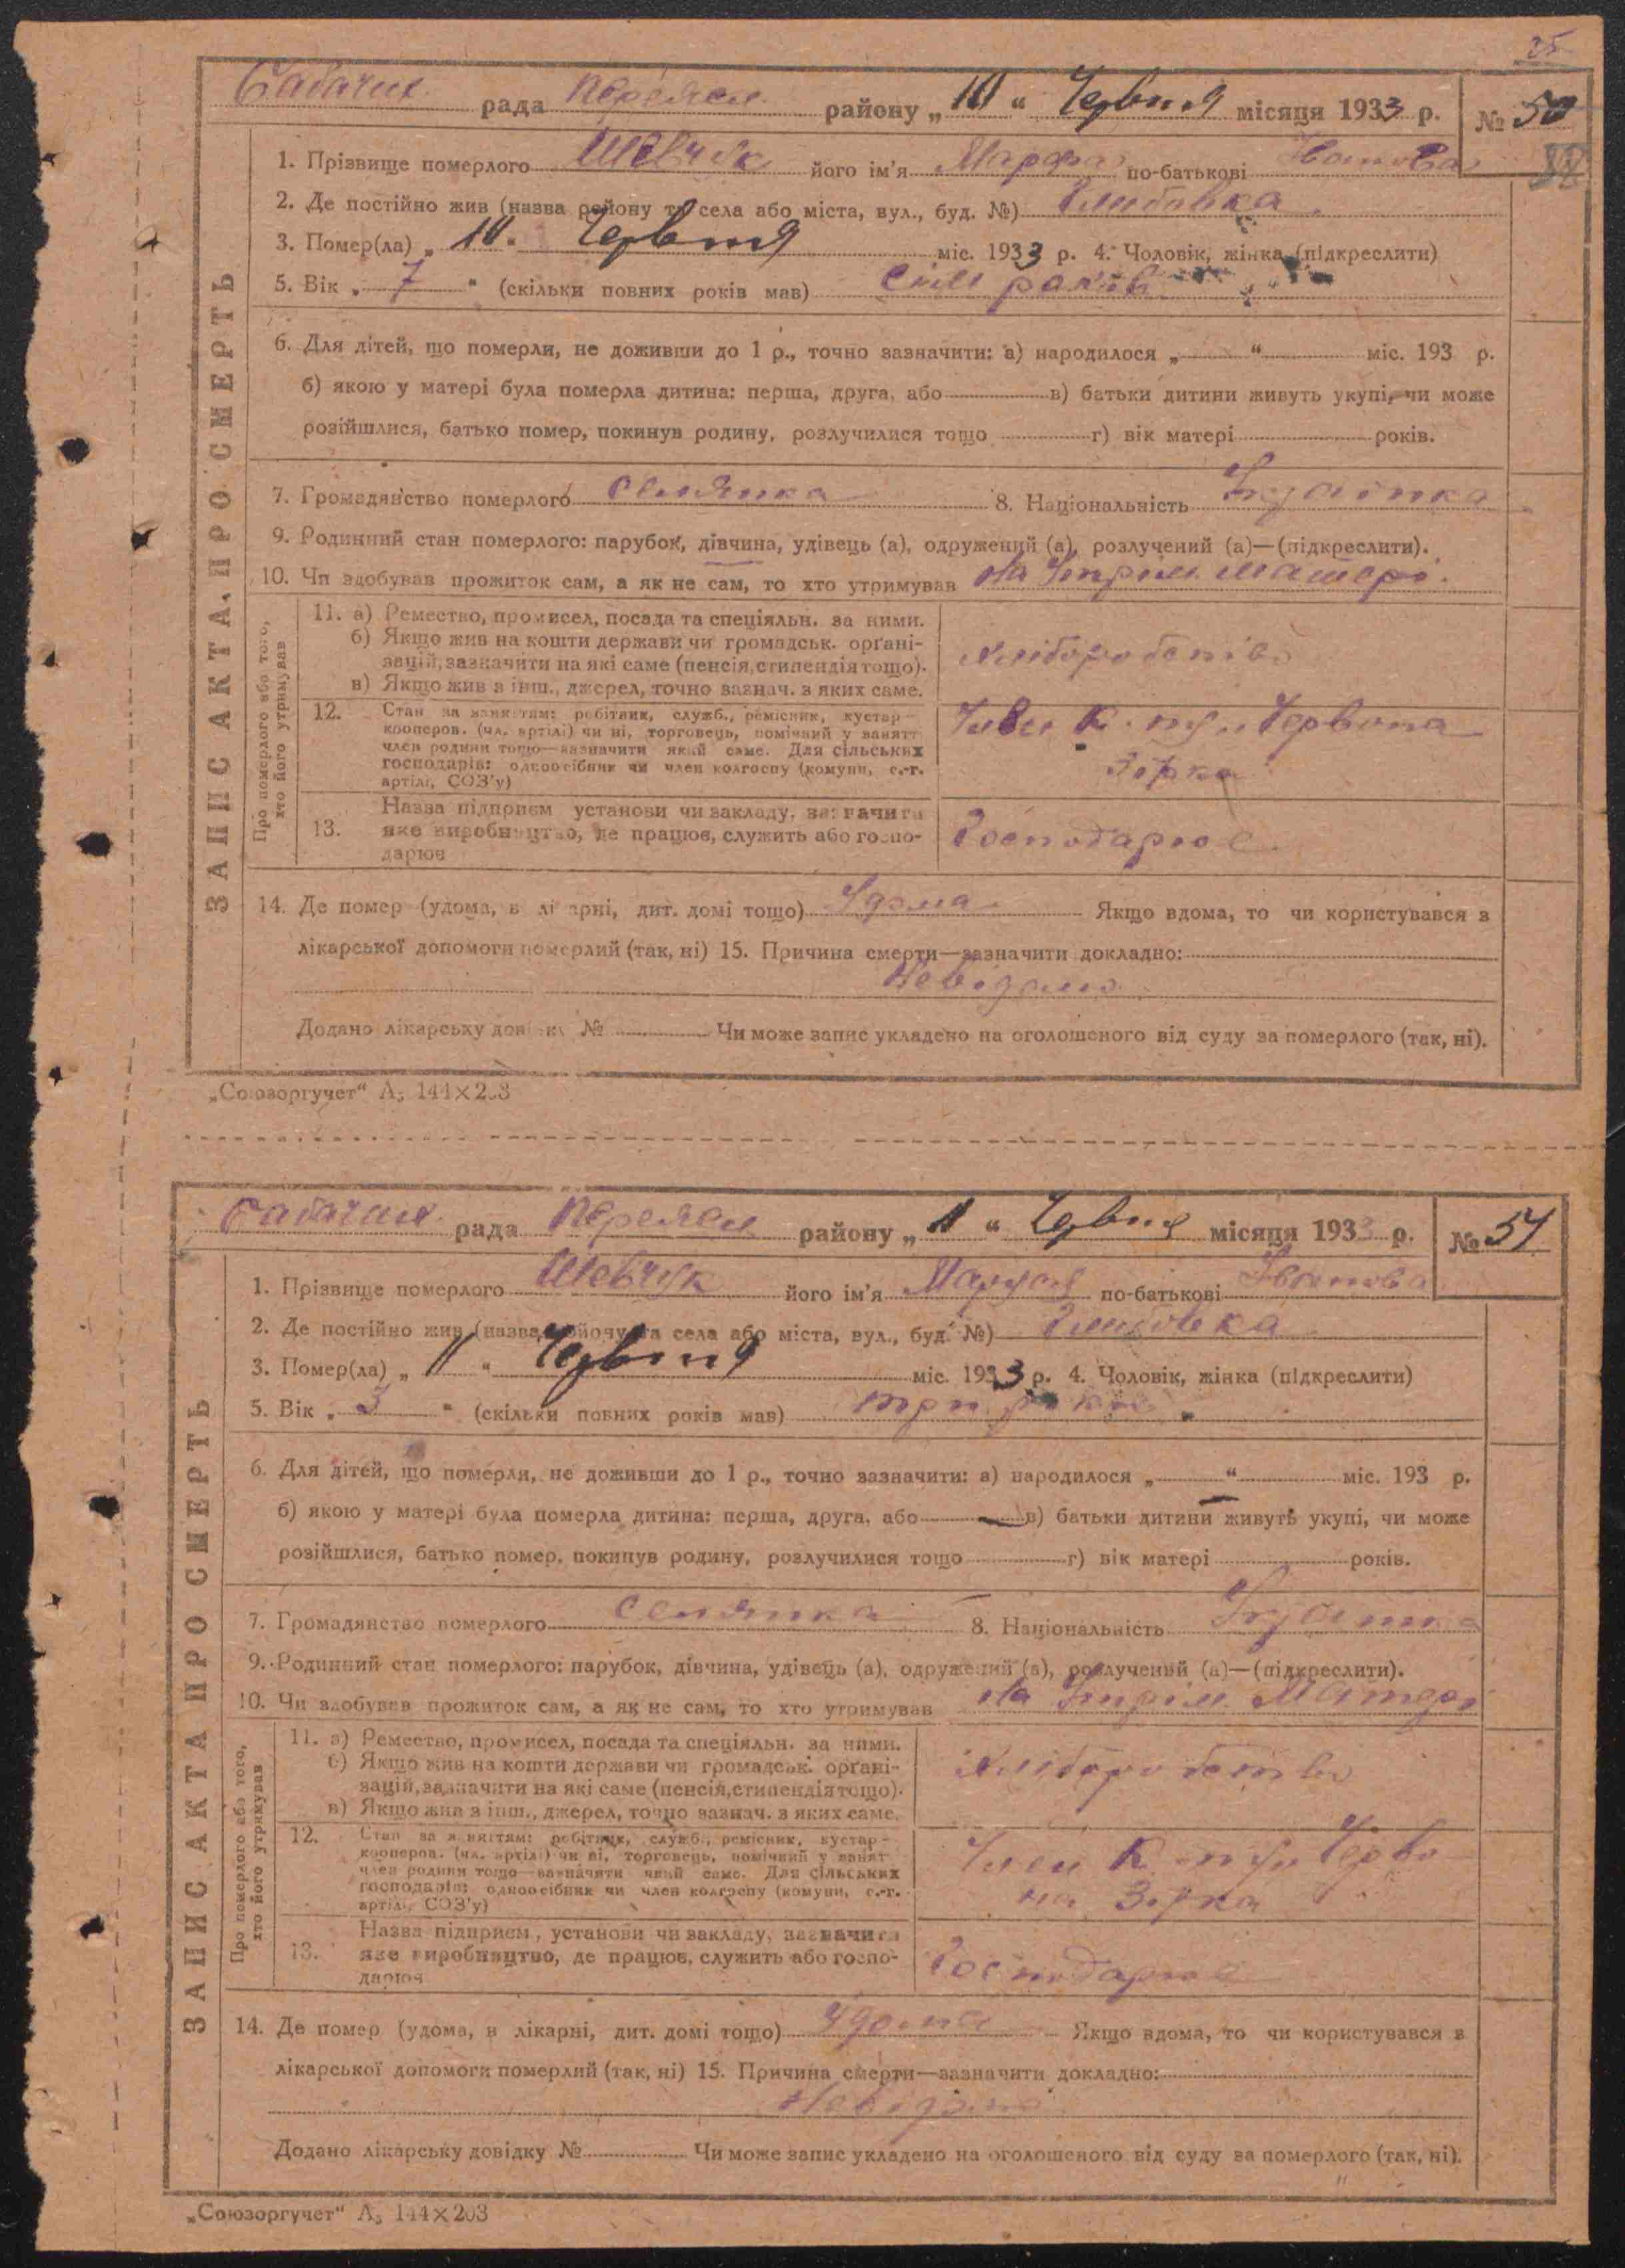 25
рада Переясл. району „10“ Червня місяця 1933 р. № 50
ЗАПИС АКТА ПРО СМЕРТЬ
1. Прізвище померлого Шевчук його ім'я Марфа по-батькові Іванова
2. Де постійно жив (назва району та села або міста, вул., буд. №)
3. Помер(ла) „10“ Червня міс. 1933 р. 4. Чоловік, жінка (підкреслити)
5. Вік „7“ (скільки повних років мав) сім років
6. Для дітей, що померли, не доживши до 1 р., точно зазначити: а) народилося „ “ міс. 193 р.
б) якою у матері була померла дитина: перша, друга, або в) батьки дитини живуть укупі, чи може
розійшлися, батько помер, покинув родину, розлучилися тощо г) вік матері років.
7. Громадянство померлого селянка 8. Національність Українка
9. Родинний стан померлого: парубок, дівчина, удівець (а), одружений (а), розлучений (а)—(підкреслити).
10. Чи здобував прожиток сам, а як не сам, то хто утримував на утрим. матері.
Про померлого або того, хто його утримував
11. а) Ремество, промисел, посада та спеціяльн. за ними.
б) Якщо жив на кошти держави чи громадськ. орґані-
зацій, зазначити на які саме (пенсія, стипендія тощо).
в) Якщо жив з інш., джерел, точно зазнач. з яких саме.
хліборобство
12. Стан за заняттям: робітник, служб., ремісник, кустар-
кооперов. (чл. артілі) чи ні, торговець, помічний у занятт
член родини тощо—зазначити який саме. Для сільських
господарів: одноосібник чи член колгоспу (комуни, с.-г.
артілі, СОЗ'у)
Член Червона
Зірка
13. Назва підприєм установи чи закладу, зазначити
яке виробництво, де працює, служить або госпо-
дарює
Господарює
14. Де помер (удома, в лікарні, дит. домі тощо) Удома Якщо вдома, то чи користувався з
лікарської допомоги померлий (так, ні) 15. Причина смерти—зазначити докладно:
Невідомо
Додано лікарську довідку № Чи може запис укладено на оголошеного від суду за померлого (так, ні).
„Союзоргучет“ А5 144×203
рада Переясл. району „11“ Червня місяця 1933 р. № 51
ЗАПИС АКТА ПРО СМЕРТЬ
1. Прізвище померлого Шевчук його ім'я по-батькові Іванова
2. Де постійно жив (назва району та села або міста, вул., буд. №)
3. Помер(ла) „11“ Червня міс. 1933 р. 4. Чоловік, жінка (підкреслити)
5. Вік „3“ (скільки повних років мав) три роки
6. Для дітей, що померли, не доживши до 1 р., точно зазначити: а) народилося „ “ міс. 193 р.
б) якою у матері була померла дитина: перша, друга, або в) батьки дитини живуть укупі, чи може
розійшлися, батько помер, покинув родину, розлучилися тощо г) вік матері років.
7. Громадянство померлого селянка 8. Національність Українка
9. Родинний стан померлого: парубок, дівчина, удівець (а), одружений (а), розлучений (а)—(підкреслити).
10. Чи здобував прожиток сам, а як не сам, то хто утримував на утрим. матері
Про померлого або того, хто його утримував
11. а) Ремество, промисел, посада та спеціяльн. за ними.
б) Якщо жив на кошти держави чи громадськ. орґані-
зацій, зазначити на які саме (пенсія, стипендія тощо).
в) Якщо жив з інш., джерел, точно зазнач. з яких саме.
хліборобство
12. Стан за заняттям: робітник, служб., ремісник, кустар-
кооперов. (чл. артілі) чи ні, торговець, помічний у занят
член родини тощо—зазначити який саме. Для сільських
господарів: одноосібник чи член колгоспу (комуни, с.-г.
артілі, СОЗ'у)
Член Черво-
на Зірка
13. Назва підприєм, установи чи закладу, зазначити
яке виробництво, де працює, служить або госпо-
дарює
Господарює
14. Де помер (удома, в лікарні, дит. домі тощо) Удома Якщо вдома, то чи користувався з
лікарської допомоги померлий (так, ні) 15. Причина смерти—зазначити докладно:
Невідомо
Додано лікарську довідку № Чи може запис укладено на оголошеного від суду за померлого (так, ні).
„Союзоргучет“ А5 144×203